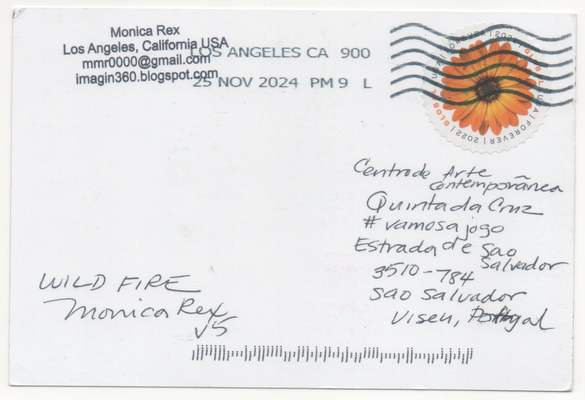 Monica Rex
Los Angeles, California USA
mmr0000@gmail.com
imagin360.blogspot.com
LOS ANGELES CA 900
25 NOV 2024 PM 9 L
USA | FOREVER | 2022 |
Centro de Arte
contemporânea
Quinta da Cruz
#vamosajogo
Estrada de Sao
Salvador
3510-784
Sao Salvador
Viseu, Portugal
WILD FIRE
Monica Rex